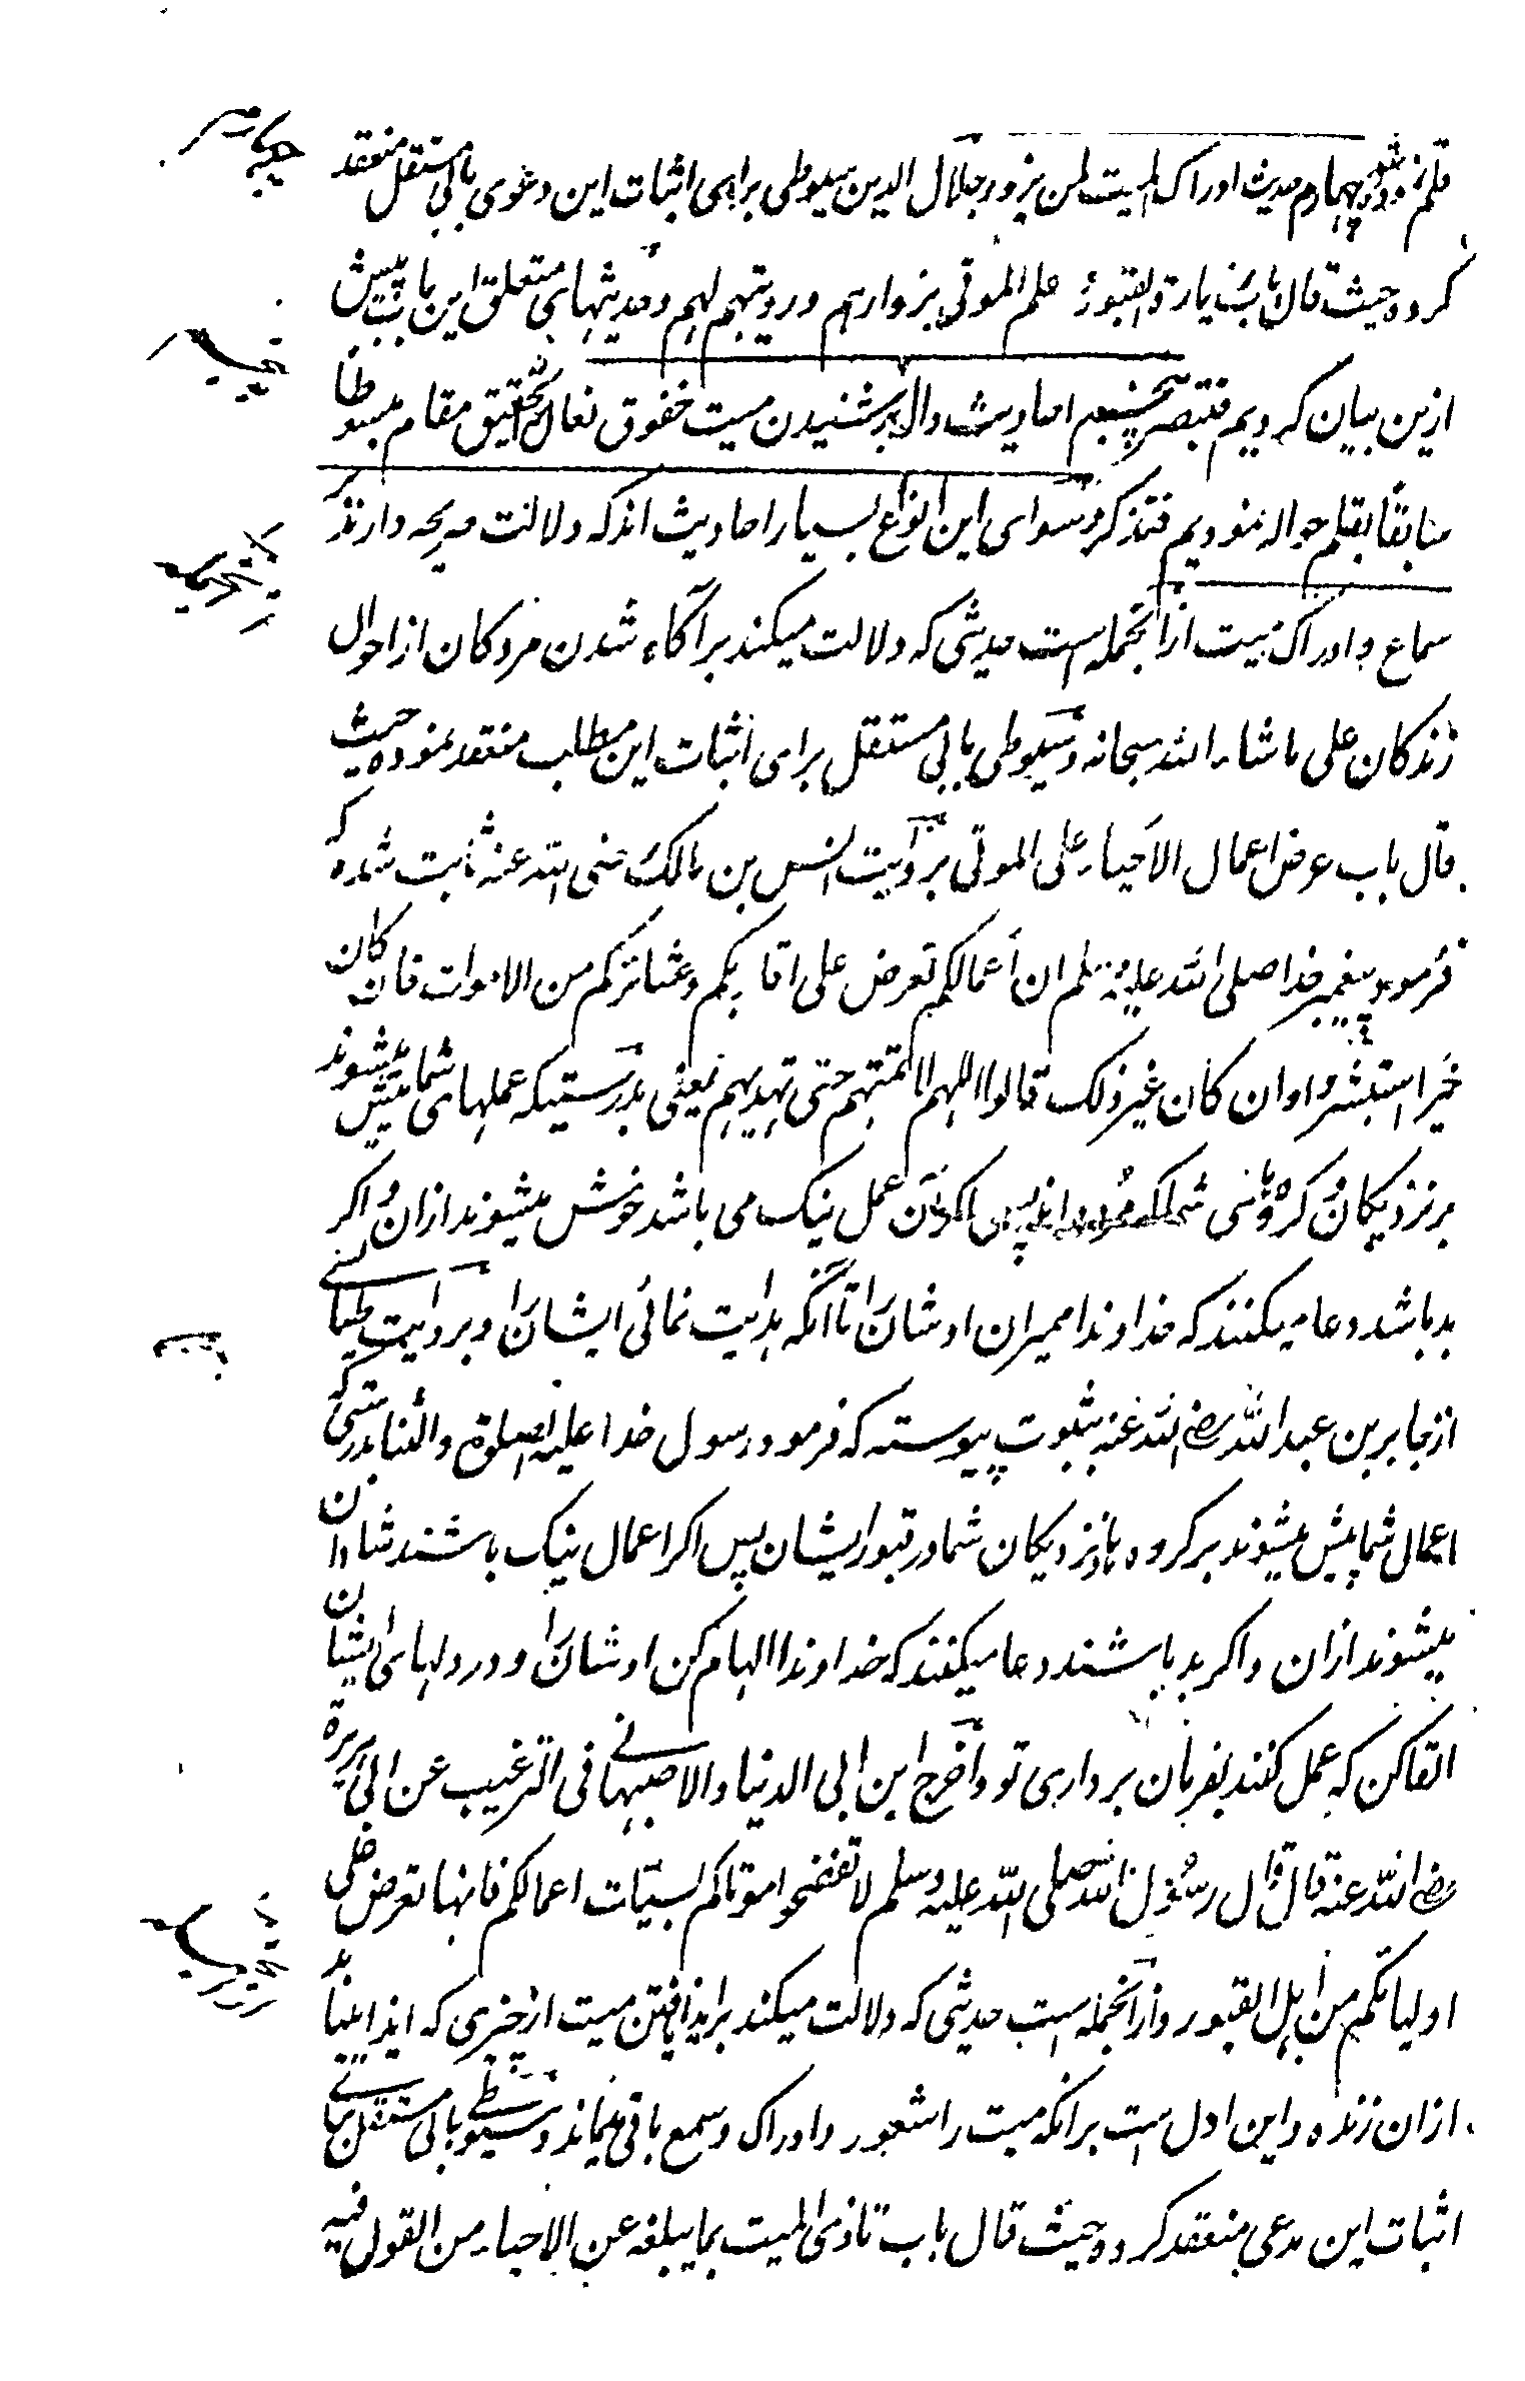 چهارم حدیث ادراک المیت لمن یزور جلال الدین سیوطی برای اثبات این دعوی بابی مستقل منعقد
کرده حیث قال باب زیارة القبور و علم الموتی بزوارهم و رویتهم لهم و حدیثهای متعلق این باب پیش
ازین بیان کردیم فتبصر پنجم احادیث دال بر شنیدن میت خفوق نعال تحقیق مقام مبسوطا
سابقا بقلم حواله نمودیم فتذکر و سوای این انواع بسیار احادیث اند که دلالت صریحه دارند بر
سماع و ادراک میت ازانجمله است حدیثی که دلالت میکند بر آگاه شدن مردگان از احوال
زندگان علی ما شاء الله سبحانه و سیوطی بابی مستقل برای اثبات این مطلب منعقد نموده حیث
قال باب عرض اعمال الاحیاء علی الموتی بروایت انس بن مالک رضی الله عنه ثابت شده که
فرمود پیغمبر خدا صلی الله علیه وسلم ان اعمالکم تعرض علی اقاربکم و عشائرکم من الاموات فان کان
خیرا استبشروا وان کان غیر ذلک قالوا اللهم لا تمتهم حتی تهدیهم یعنی بدرستیکه عملهای شما پیش میشوند
بر نزدیکان و گروهای شما که مرده اند پس اگر آن عمل نیک می باشد خوش میشوند ازان و اگر
بد باشد دعا میکنند که خداوندا ممیران اوشان را تا آنکه هدایت نمائی ایشان را و بروایت طیالسی
از جابر بن عبد الله رضی الله عنه بثبوت پیوسته که فرمود رسول خدا علیه الصلوة والثنا بدرستی که
اعمال شما پیش میشوند بر گروه یا نزدیکان شما در قبور ایشان پس اگر اعمال نیک باشند شادان
میشوند ازان و اگر بد باشند دعا میکنند که خداوندا الهام کن اوشان را و در دلهای ایشان
القا کن که عمل کنند بفرمان برداری تو و اخرج ابن ابی الدنیا والاصبهانی فی الترغیب عن ابی هریرة
رضی الله عنه قال قال رسول الله صلی الله علیه وسلم لا تفضحوا موتاکم بسیئات اعمالکم فانها تعرض علی
اولیائکم من اهل القبور و ازانجمله است حدیثی که دلالت میکند بر ایذا یافتن میت از چیزی که ایذا یابد
ازان زنده و این ادل است برانکه میت را شعور و ادراک و سمع باقی میماند و سیوطی بابی مستقل
اثبات این مدعی منعقد کرده حیث قال باب تاذی المیت بما یبلغه عن الاحیاء من القول فیه